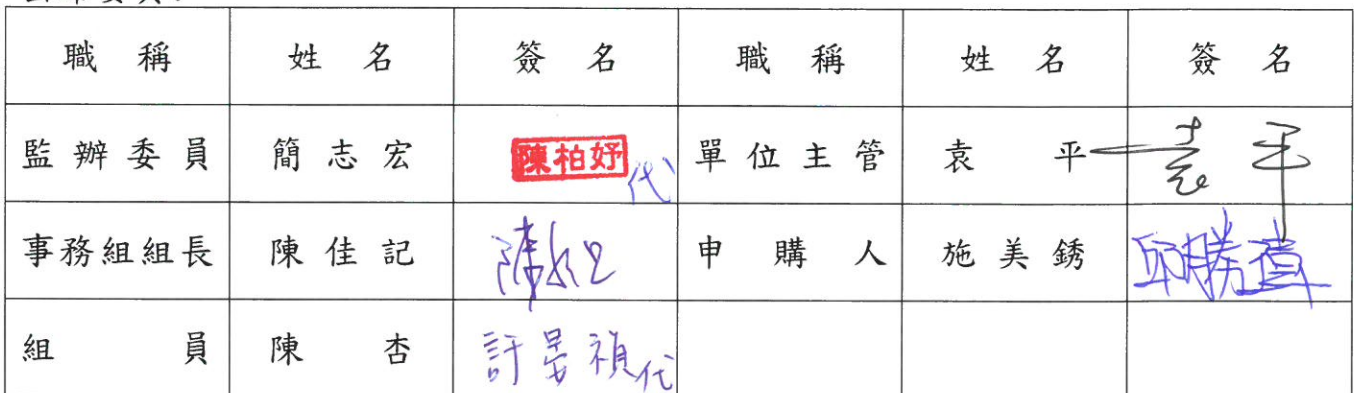 職稱 姓名 簽名 職稱 姓名 簽名
監辦委員 簡志宏 陳柏妤 代 單位主管 袁平 袁平
事務組組長 陳佳記 陳佳記 申購人 施美銹
組員 陳杏 許晏禎代